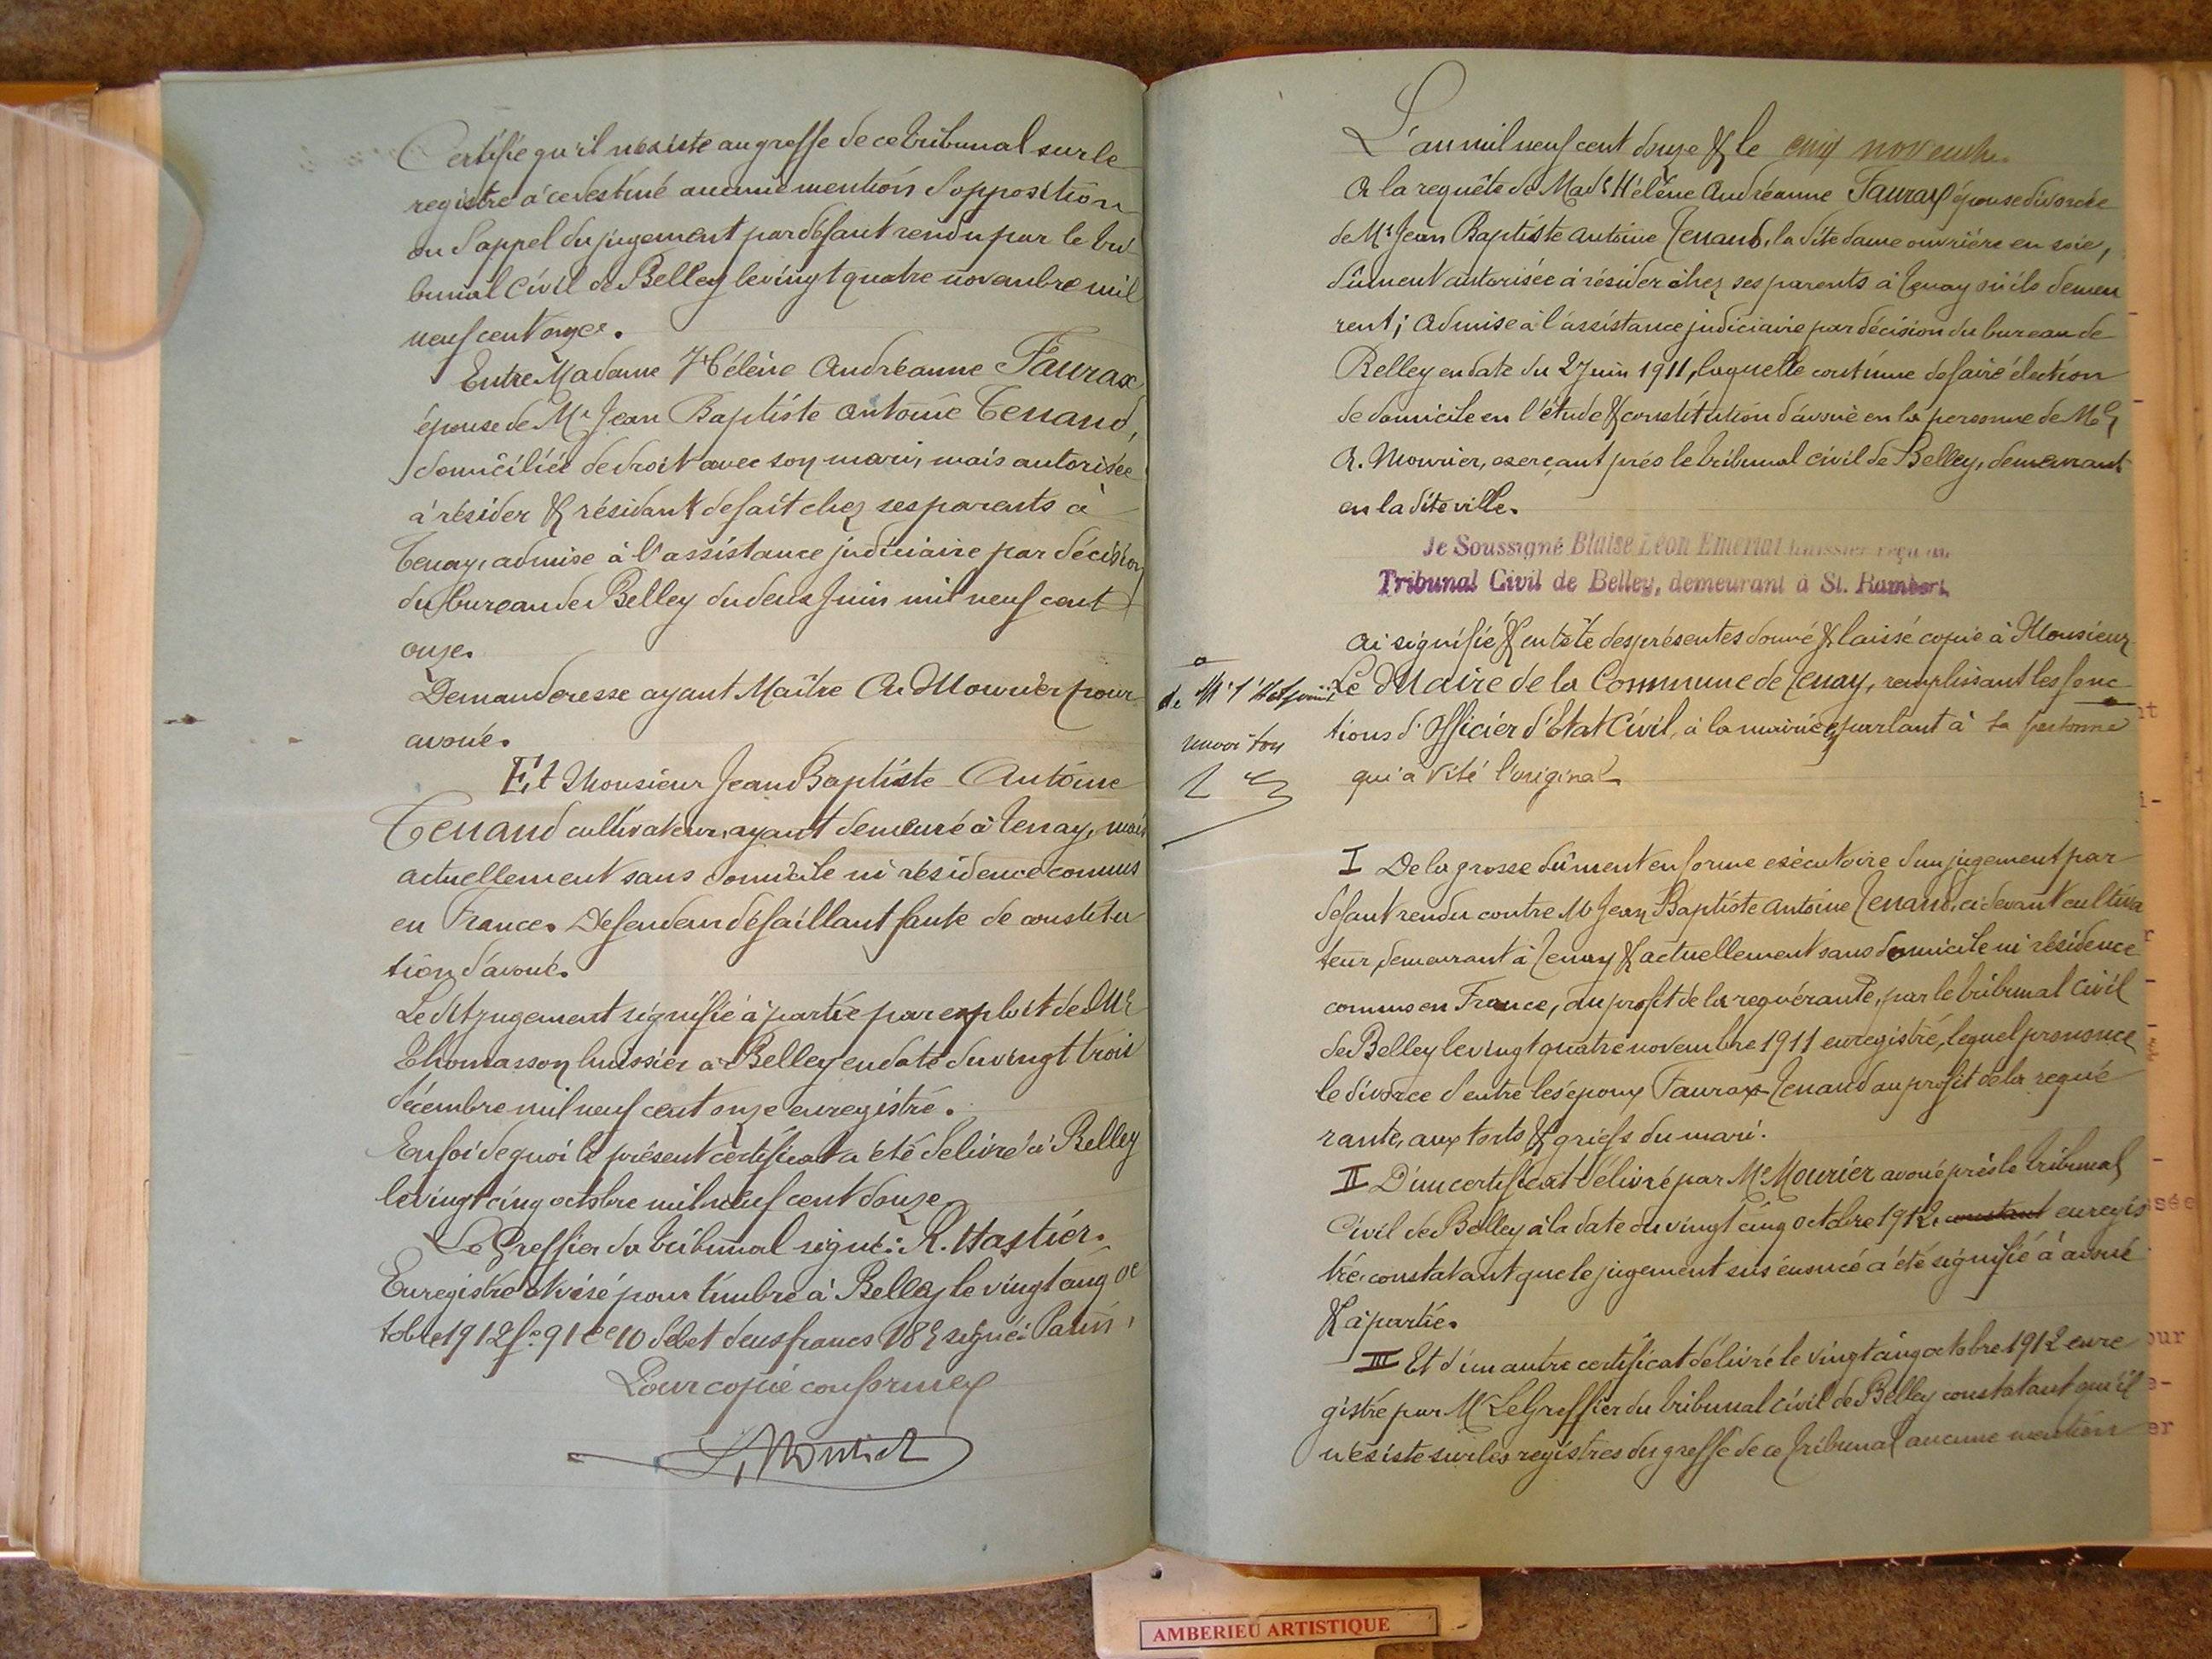 Certifie qu'il n'existe au greffe de ce tribunal sur le
registre à ce destiné aucune mention d'opposition
ou d'appel du jugement par défaut rendu par le tri
bunal Civil de Belley le vingt quatre novembre mil
neuf cent onze.
Entre Madame Hélène Andréanne Faurax
épouse de Mr Jean Baptiste Antoine Tenand,
domiciliée de droit avec son mari, mais autorisée
à résider & résidant de fait chez ses parents à
Tenay, admise à l'assistance judiciaire par décision
du bureau de Belley du deux Juin mil neuf cent
onze.
Demanderesse ayant Maître A. Mourier pour
avoué.
Et Monsieur Jean Baptiste Antoine
Tenand cultivateur, ayant demeuré à Tenay, mais
actuellement sans domicile ni résidence connus
en France. Défendeur défaillant faute de constitu
tion d'avoué.
Le dit jugement signifié à partie par exploit de Me
Thomasson huissier à Belley en date du vingt trois
décembre mil neuf cent onze enregistré.
En foi de quoi le présent certificat a été délivré à Belley
le vingt cinq octobre mil neuf cent douze
Le Greffier du tribunal signé: R. Hastier.
Enregistré et visé pour timbre à Belley le vingt cinq oc
tobre 1912 fo 91 ce 10 débet deux francs 18c signé:
Pour copie conforme
L'an mil neuf cent douze & le cinq novembre
A la requête de Made Hélène Andréanne Faurax épouse divorcée
de Mr Jean Baptiste Antoine Tenand, la dite dame ouvrière en soie,
dûment autorisée à résider chez ses parents à Tenay où ils demeu
rent; Admise à l'assistance judiciaire par décision du bureau de
Belley en date du 2 Juin 1911, laquelle continue de faire élection
de domicile en l'étude & constitution d'avoué en la personne de Me
A. Mourier, exerçant près le tribunal civil de Belley, demeurant
en la dite ville.
Je Soussigné Blaise Léon Emeriat huissier reçu au
Tribunal Civil de Belley, demeurant à St. Rambert
Ai signifié & en tête des présentes donné & laissé copie à Monsieur
Le Maire de la Commune de Tenay, remplissant les fonc
tions d'Officier d'Etat Civil, à la mairie, parlant à sa personne
qui a visé l'original
I De la grosse dûment en forme exécutoire d'un jugement par
défaut rendu contre Mr Jean Baptiste Antoine Tenand, ci devant cultiva
teur, demeurant à Tenay & actuellement sans domicile ni résidence
connus en France, au profit de la requérante, par le tribunal civil
de Belley le vingt quatre novembre 1911 enregistré, lequel prononce
le divorce d'entre les époux Faurax-Tenand au profit de la requé
rante, aux torts & griefs du mari.
II D'un certificat délivré par Me Mourier avoué près le tribunal
Civil de Belley à la date du vingt cinq octobre 1912, constant enregis
tré, constatant que le jugement sus énoncé a été signifié à avoué
& à partie.
III Et d'un autre certificat délivré le vingt cinq octobre 1912 enre
gistré par Mr Le Greffier du tribunal civil de Belley constatant qu'il
n'existe sur les registres du greffe de ce tribunal aucune mention
AMBERIEU ARTISTIQUE